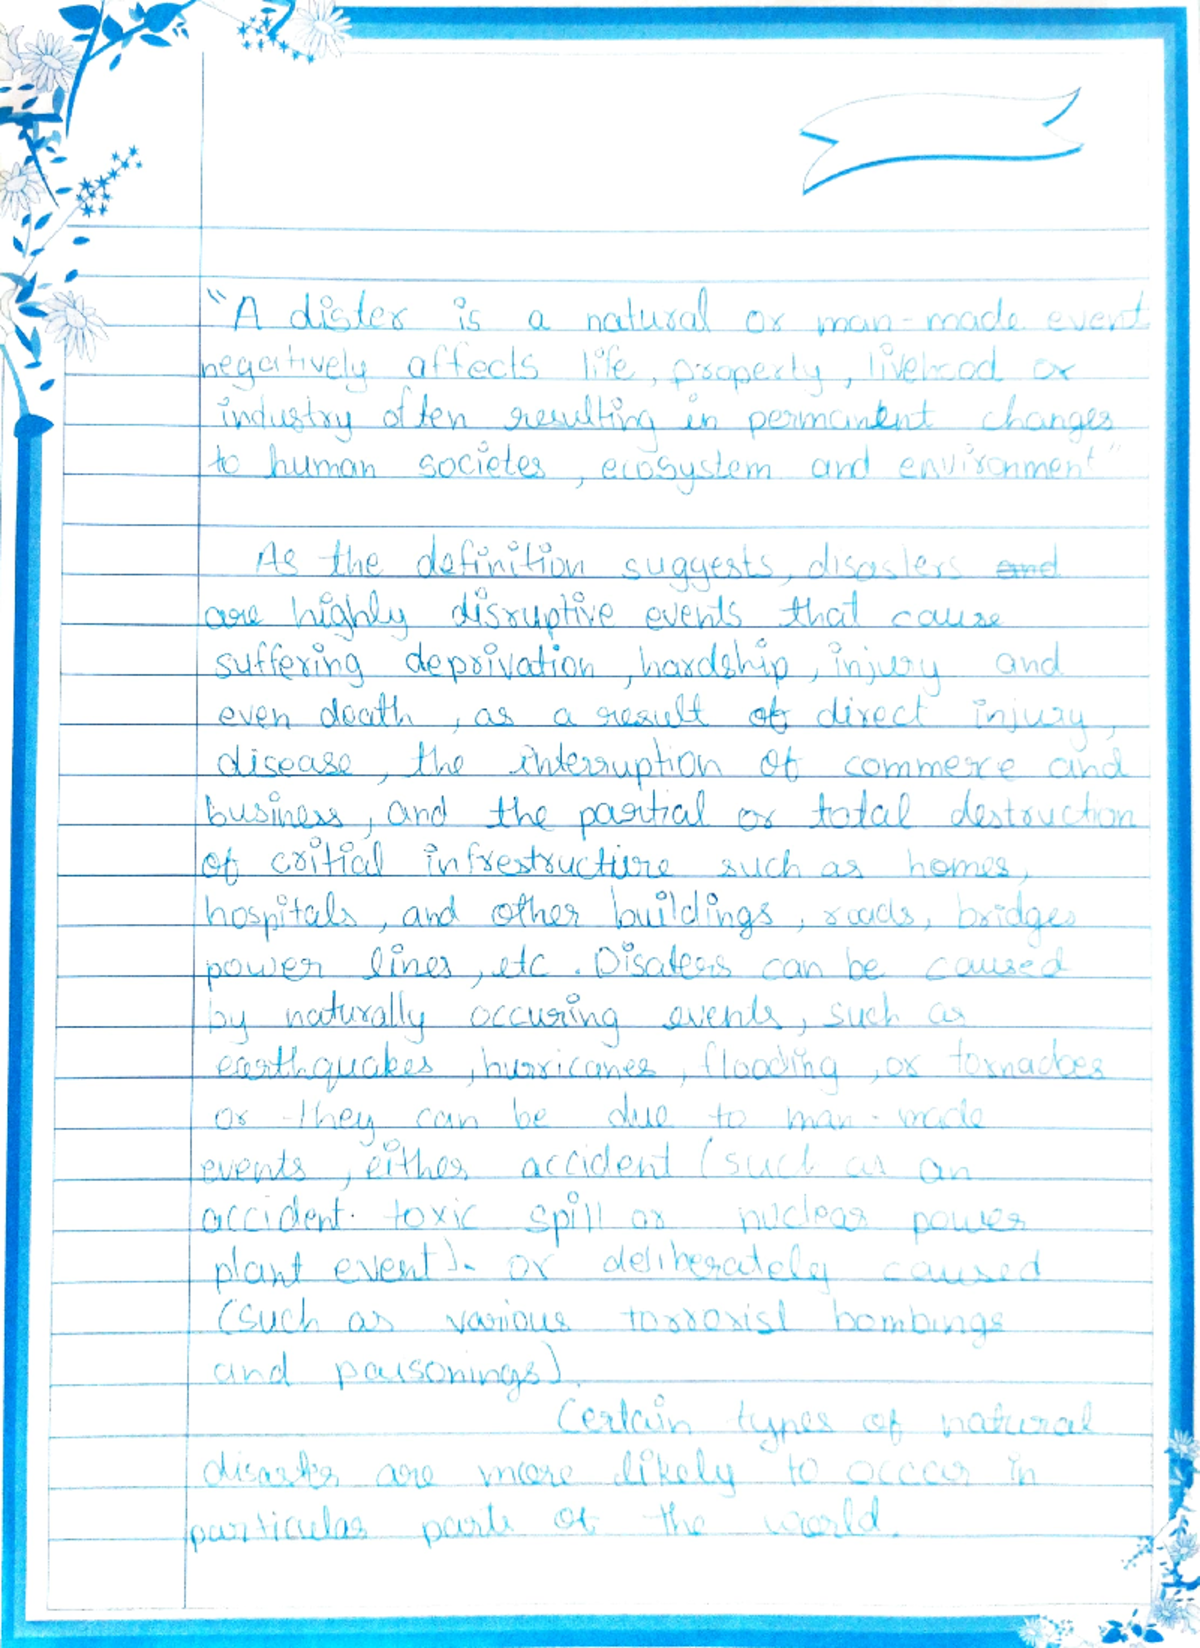 "A dister is a natural or man-made event
negatively affects life, property, livehood or
industry often resulting in permanent changes
to human societes, ecosystem and environment"
As the definition suggests, disasters and
are highly disruptive events that cause
suffering deprivation, hardship, injury and
even death, as a result of direct injury,
disease, the interruption of commerce and
business, and the partial or total destruction
of critial infrestructure such as homes,
hospitals, and other buildings, roads, bridges
power lines, etc. Disaters can be caused
by naturally occuring events, such as
earthquakes, hurricanes, flooding, or tornadoes
or they can be due to man-made
events, either accident (such as an
accident. toxic spill or nuclear power
plant event). or deliberately caused
(such as various torrorist bombings
and poisonings).
Certain types of natural
disasters are more likely to occur in
particular parts of the world.